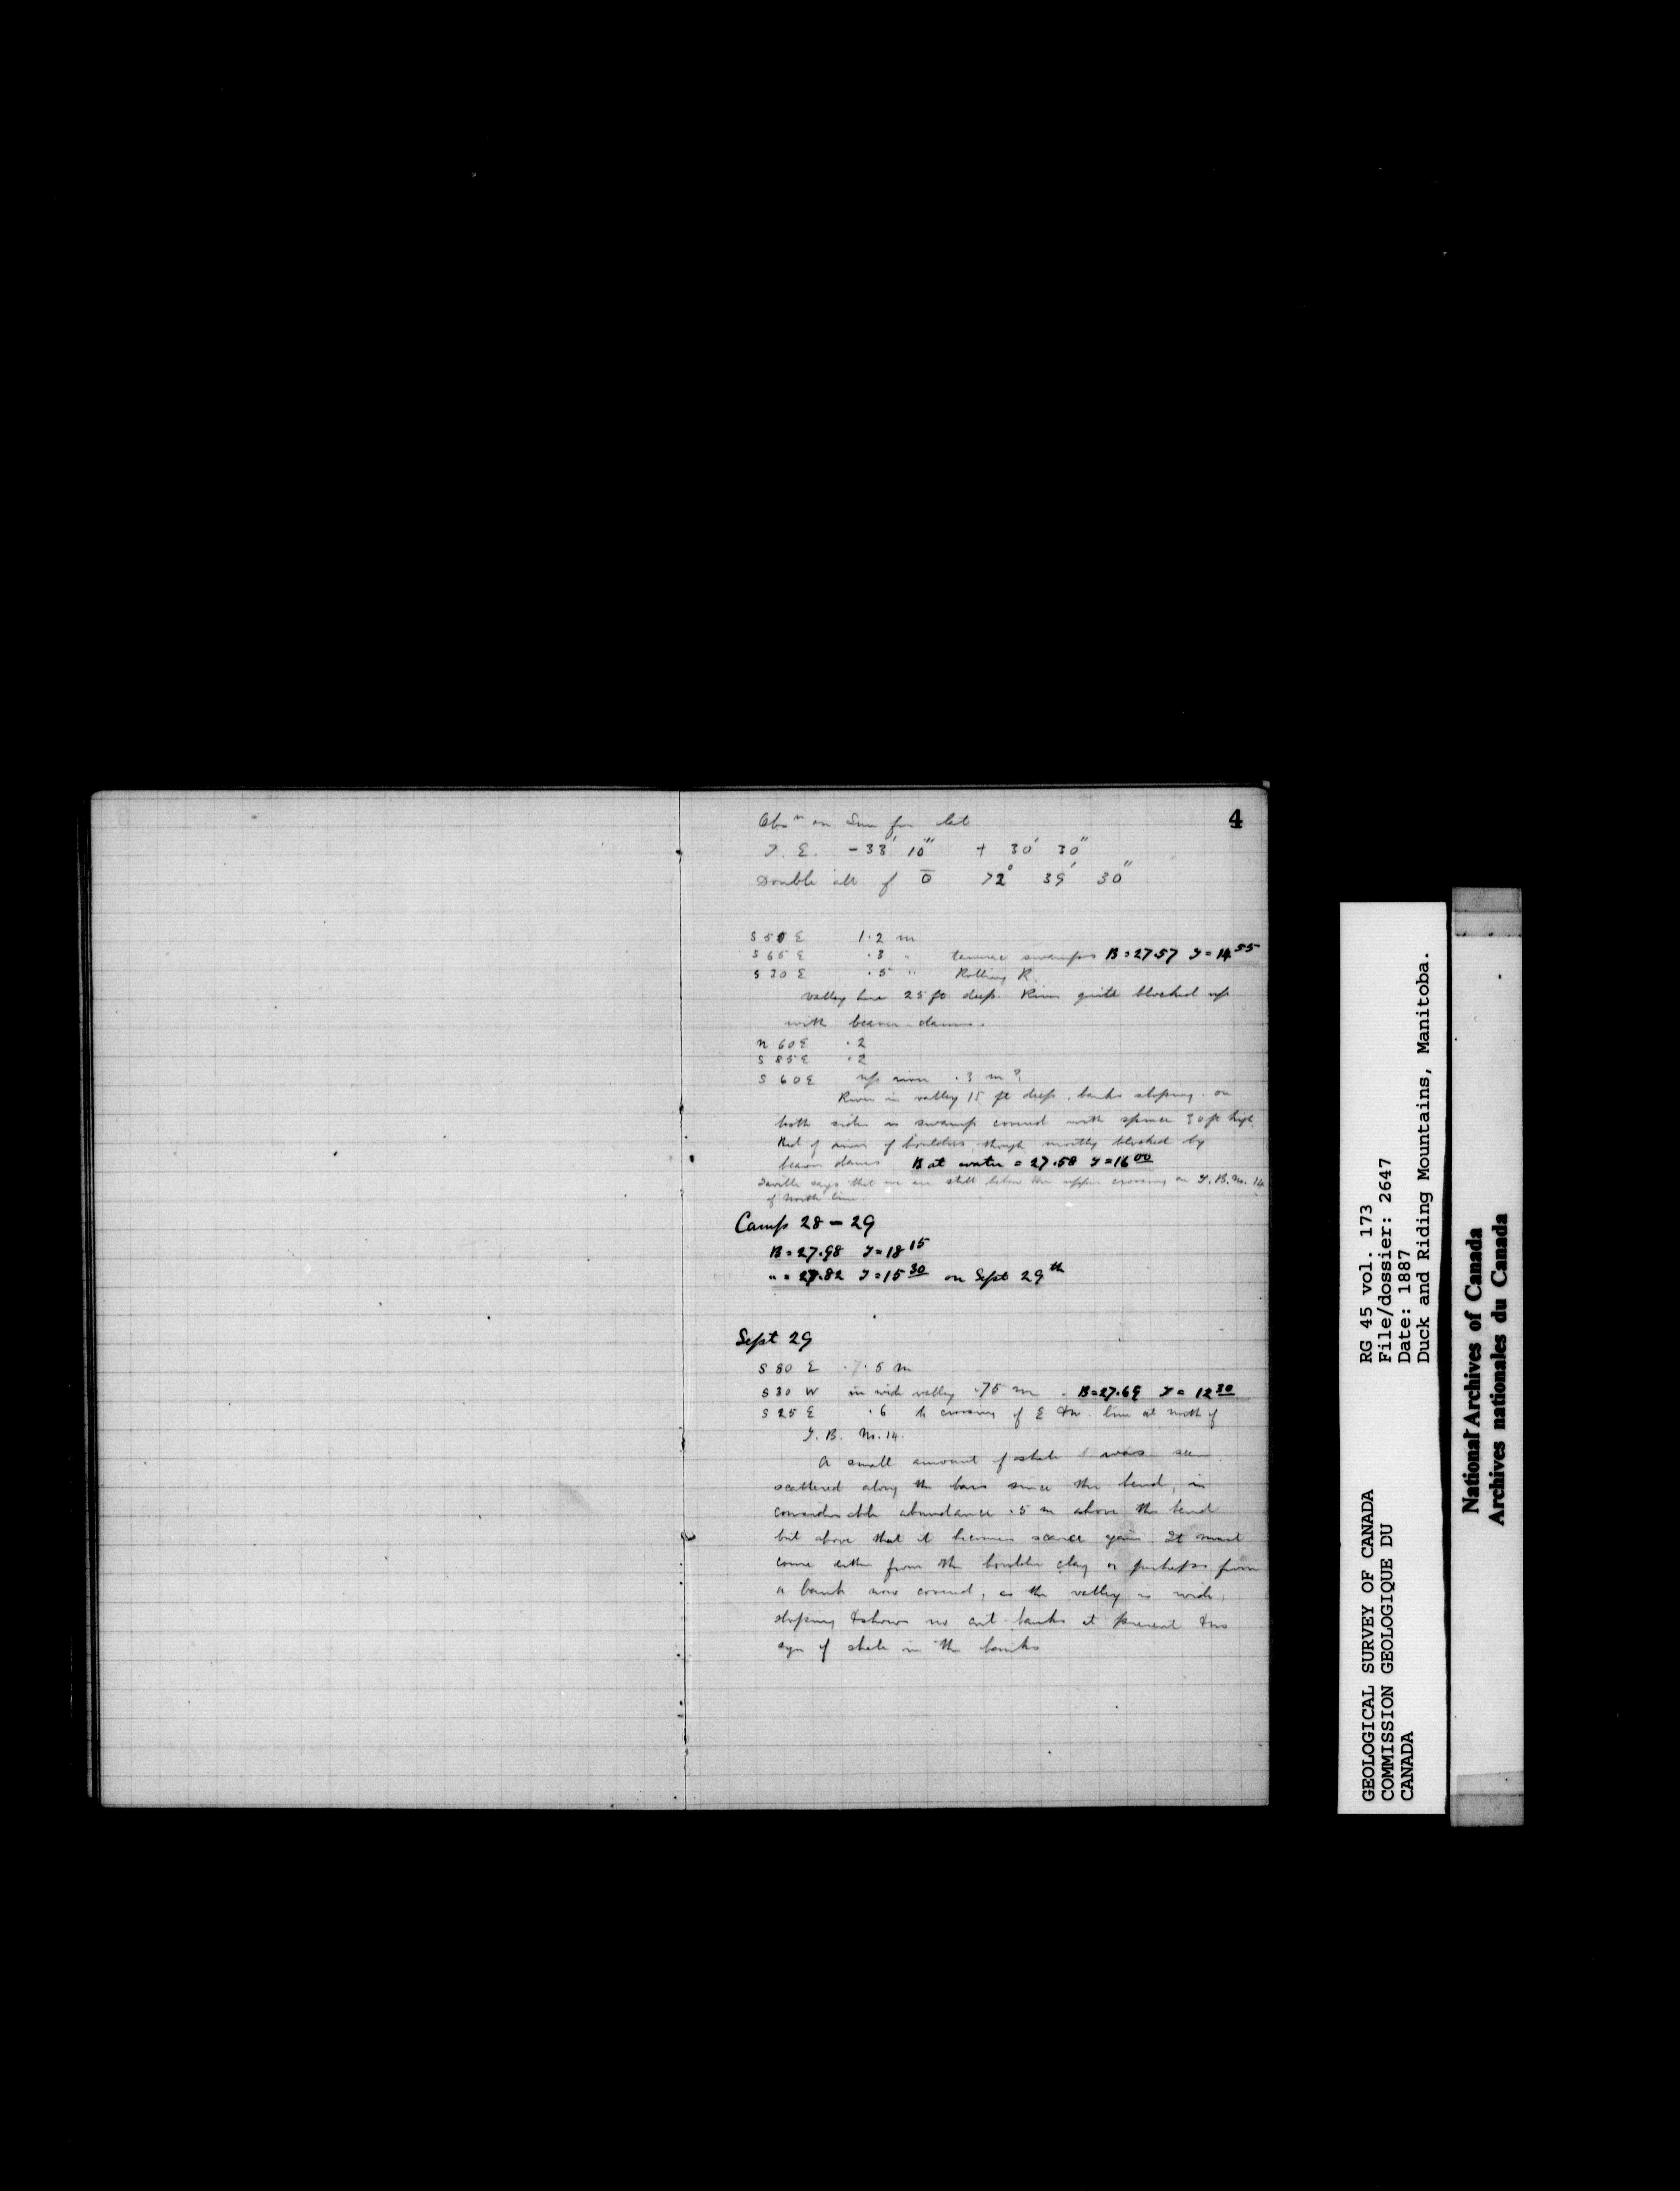 4
Obsⁿ on Sun for Lat
I. E. -33' 10" + 30' 30"
Double alt of 72° 39' 30"
S 50 E 1.2 m
S 65 E .3 " tamarac swamps B = 27.57 T = 14 55
S 30 E .5 " Rolling R.
valley here 25 ft deep. River quite blocked up
with beaver-dams.
N 60 E .2
S 85 E .2
S 60 E up river .3 m?
River in valley 15 ft deep, banks sloping. on
both sides is swamp covered with spruce 30 ft high
Bed of river of boulders, though mostly blocked by
beaver dams B at water = 27.58 T = 16 00
says that we are still below the upper crossing on T. B. M. 14
of North line.
Camp 28 - 29
B = 27.98 T = 18 15
" = 27.82 T = 15 30 on Sept 29th
Sept 29
S 80 E .5 m
S 30 W in wide valley .75 m B = 27.69 T = 12 30
S 25 E .6 to crossing of E & W. line at north of
T. B. M. 14.
A small amount of shale was seen
scattered along the bars since the bend, in
considerable abundance .5 m above the bend
but above that it becomes scarce again. It must
come either from the boulder clay or perhaps from
a bank now covered, as the valley is wide,
sloping & shows no cut-banks at present & no
sign of shale in the banks
GEOLOGICAL SURVEY OF CANADA
COMMISSION GEOLOGIQUE DU
CANADA
RG 45 vol. 173
File/dossier: 2647
Date: 1887
Duck and Riding Mountains, Manitoba.
National Archives of Canada
Archives nationales du Canada